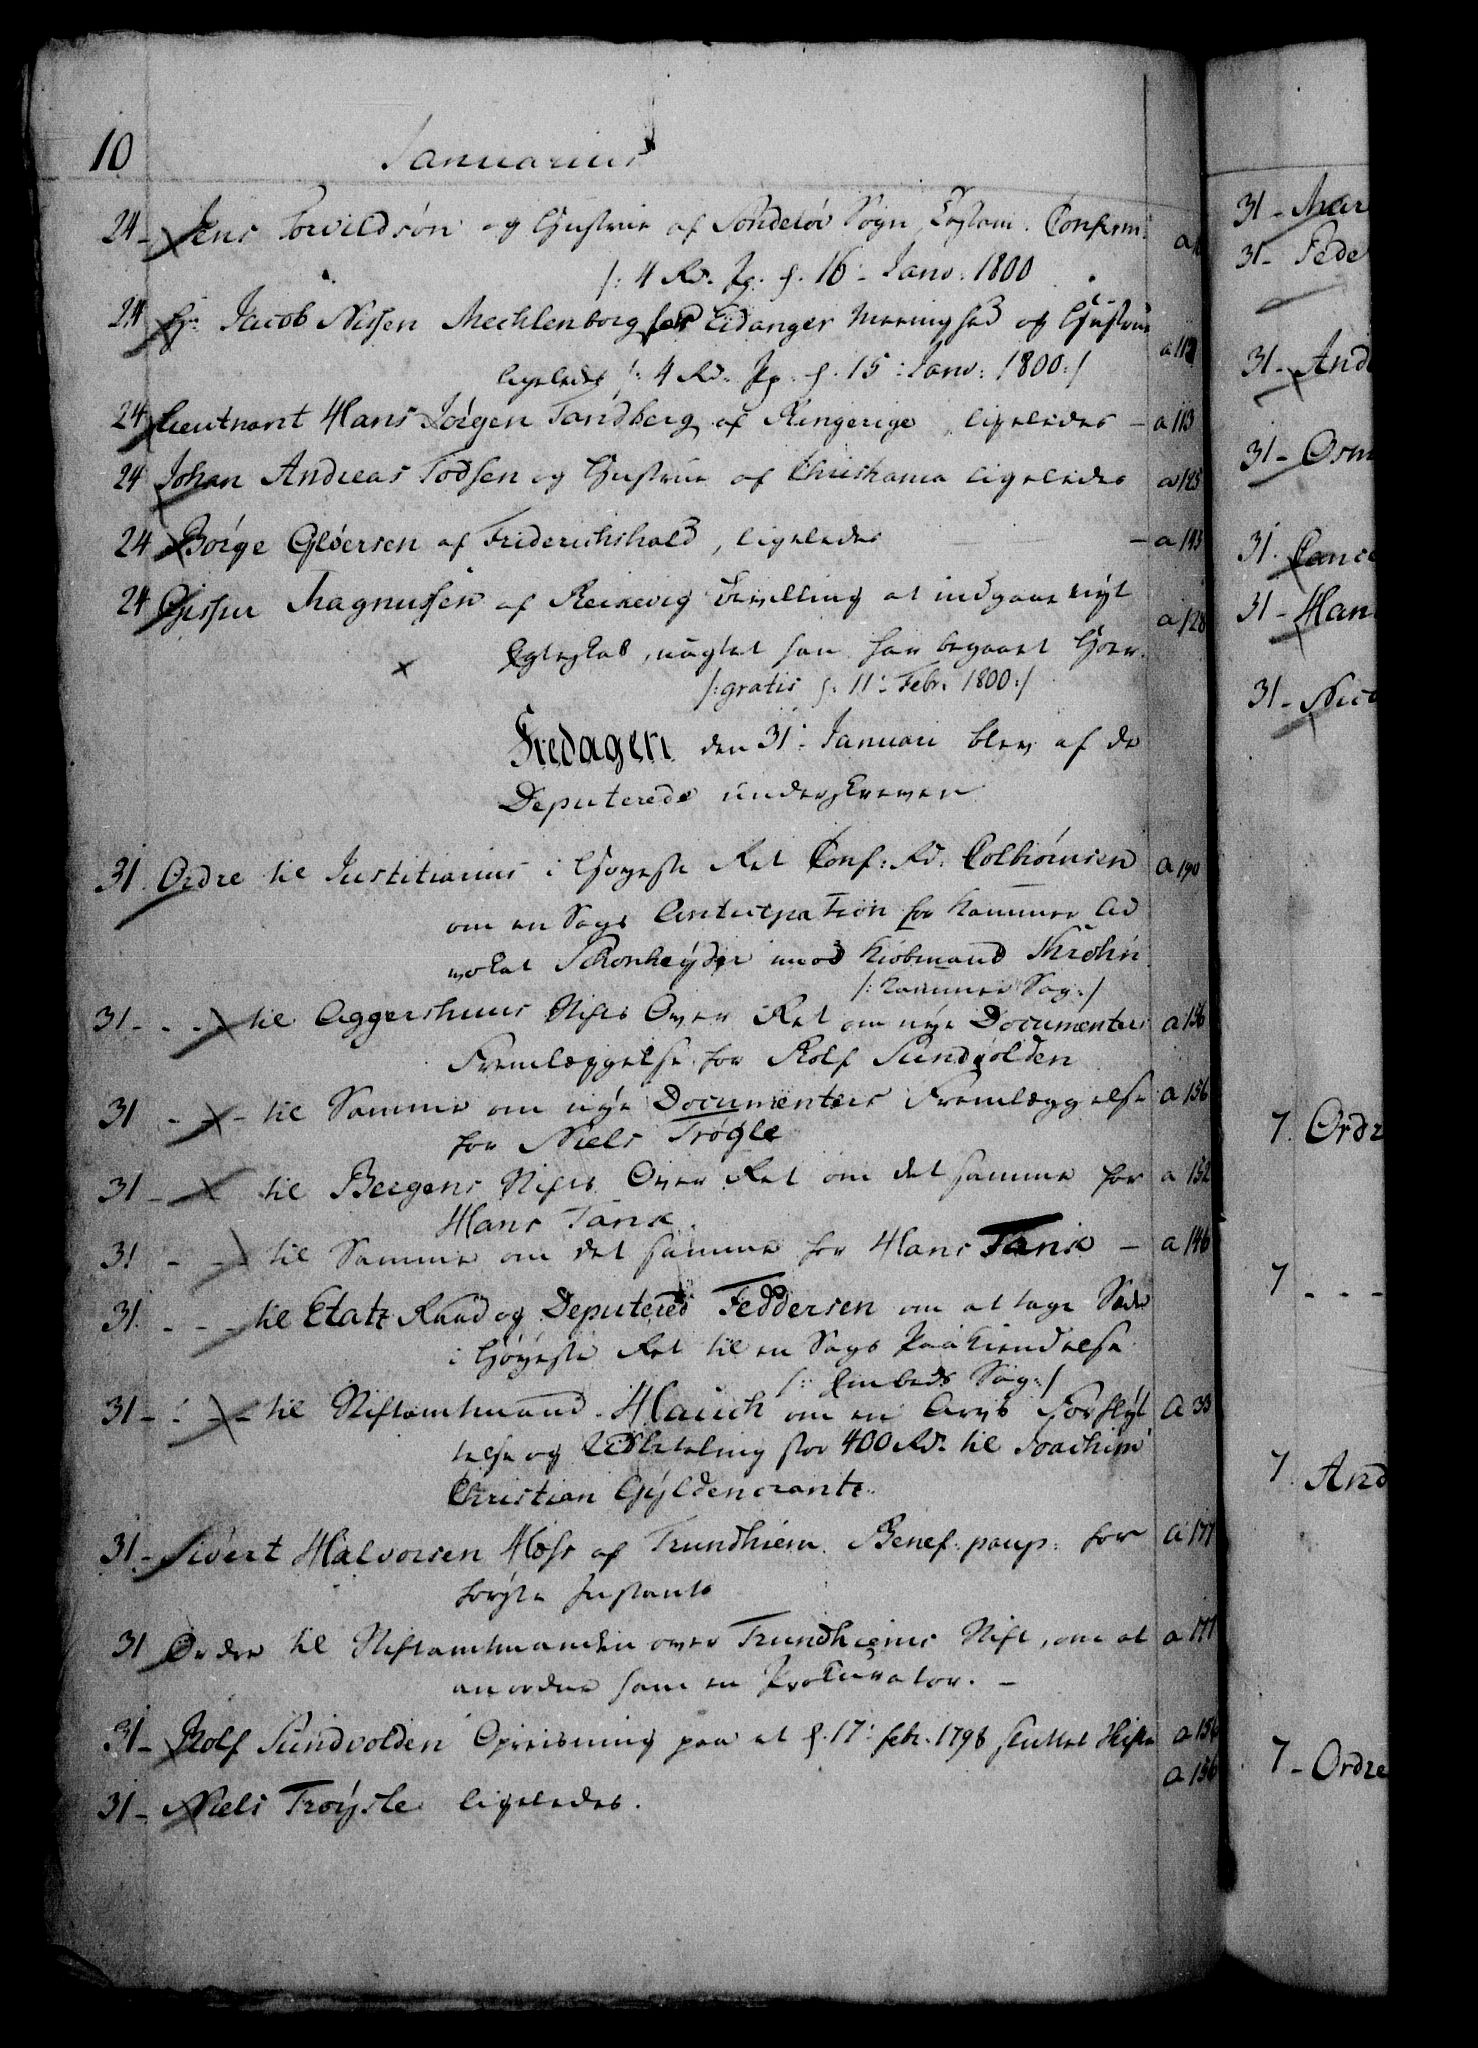 10
Januarius
24 - Jens Torvildsön og Hustrue af Sondelöv Sogn, Testam: Confirm: a
/: 4 Rd. Pp. f. 16 - Janv: 1800
24 Hr Jacob Nissen Mechlenborg for Eidanger Menighed og Hustrue
ligeledes /: 4 Rd. Pp: f. 15: Janv: 1800 :/ a 112
24 Lieutnant Hans Jörgen Tandberg af Ringerige, ligeledes - a 113
24 Johan Andreas Todsen og Hustrue af Christiania ligeledes a 125
24 Börge Glöersen af Friderichshald, ligeledes - a 143
24 Gissur Magnussen af Reikevig Bevilling at indgaae nyt a 128
Egteskab, uagtet han har begaaet Hoer.
/: gratis f: 11: Febr: 1800 :/
Fredagen den 31: Januari blev af de
Deputerede underskreven
31. Ordre til Justitiarius i Høyeste Ret Conf: Rd: Colbiörnsen a 190
om en Sags Anticipation for Kammer Ad
vokat Schönheyder mod Kiöbmand Krohn
/: Kammer Sag :/
31 - - - til Aggershuus Stifts Over Ret om nye Documenters a 156
Fremlæggelse for Rolf Sundvolden
31 - - - til Samme om nye Documenters Fremlæggelse a 156
for Niels Trögle
31 - - til Bergens Stifts Over Ret om det samme for a 152
Hans Tank.
31 - - til Samme om det samme for Hans Tank - a 146
31. - - - til Etatz Raad og Deputered Feddersen om at tage Sæde
i Høyeste Ret til en Sags Paakiendelse
/: Embeds Sag :/
31 - - - til Stiftamtmand Hauch om en Arvs Forflyt A 33
telse og Udbetaling for 400 Rd. til Joachim
Christian Gyldencrantz.
31 - Sivert Halvorsen Moss af Trundhiem. Benef: paup: for a 177
förste Instants
31 Ordre til Stiftamtmanden over Trundhiems Stift, om at a 177
anordne ham en Prokurator. -
31 - Rolf Sundvolden Opreisning paa et f. 17: febr. 1798 sluttet Skifte a 156
31 - Niels Tröyste ligeledes. a 156
31 - Mar
31 - Pede
31 - And
31 - Osm
31. Cance
31 - Han
31 - Nico
7. Ordr
7 - - -
7. And
7 - Ordre